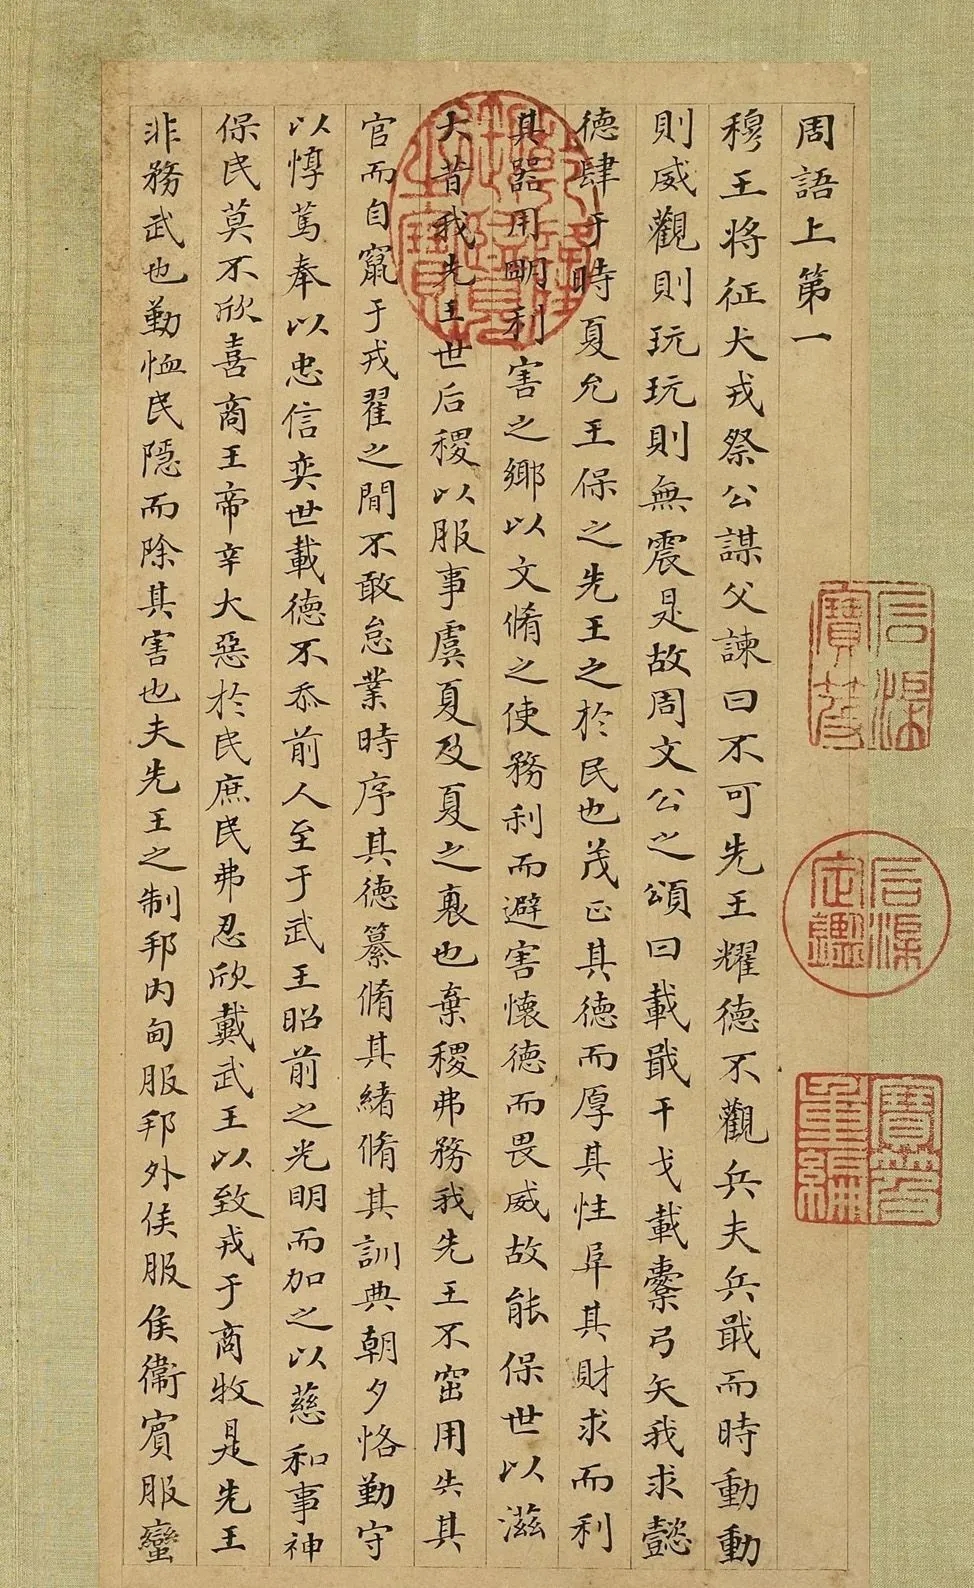 周語上第一
穆王将征犬戎祭公謀父諫曰不可先王耀德不觀兵夫兵戢而時動動
則威觀則玩玩則無震是故周文公之頌曰載戢干戈載櫜弓矢我求懿
德肆于時夏允王保之先王之於民也茂正其德而厚其性阜其財求而利
其器用明利害之鄉以文脩之使務利而避害懷德而畏威故能保世以滋
大昔我先王世后稷以服事虞夏及夏之衰也棄稷弗務我先王不窋用失其
官而自竄于戎翟之間不敢怠業時序其德纂脩其緒脩其訓典朝夕恪勤守
以惇篤奉以忠信奕世載德不忝前人至于武王昭前之光明而加之以慈和事神
保民莫不欣喜商王帝辛大惡於民庶民弗忍欣戴武王以致戎于商牧是先王
非務武也勤恤民隱而除其害也夫先王之制邦内甸服邦外侯服侯衛賓服蠻
乾隆御覽之寶
石渠寶笈
石渠定鑑
寶笈重編